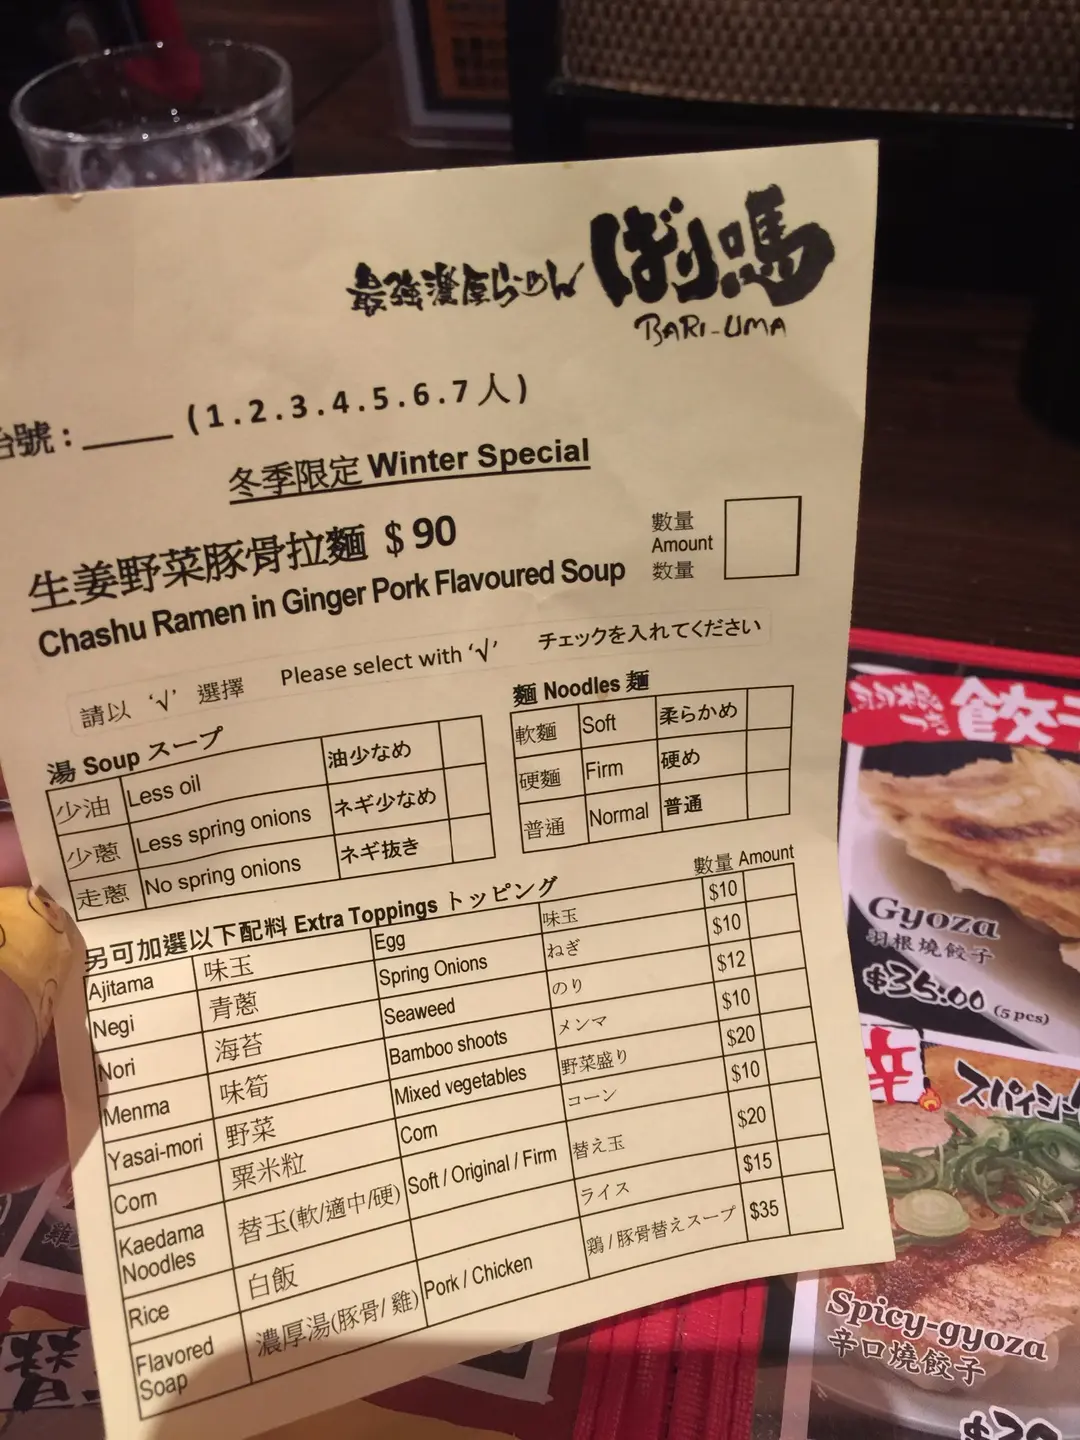 最強濃厚らーめん ばり嗎
BARI-UMA
台號：_____ (1.2.3.4.5.6.7人)
冬季限定 Winter Special
生姜野菜豚骨拉麵 $90
Chashu Ramen in Ginger Pork Flavoured Soup
數量
Amount
数量
請以 ‘√’ 選擇 Please select with ‘√’ チェックを入れてください
湯 Soup スープ
少油 Less oil 油少なめ
少蔥 Less spring onions ネギ少なめ
走蔥 No spring onions ネギ抜き
麵 Noodles 麺
軟麵 Soft 柔らかめ
硬麵 Firm 硬め
普通 Normal 普通
另可加選以下配料 Extra Toppings トッピング 數量 Amount
Ajitama 味玉 Egg 味玉 $10
Negi 青蔥 Spring Onions ねぎ $10
Nori 海苔 Seaweed のり $12
Menma 味筍 Bamboo shoots メンマ $10
Yasai-mori 野菜 Mixed vegetables 野菜盛り $20
Corn 粟米粒 Corn コーン $10
Kaedama Noodles 替玉(軟/適中/硬) Soft / Original / Firm 替え玉 $20
Rice 白飯 ライス $15
Flavored Soap 濃厚湯(豚骨/ 雞) Pork / Chicken 鶏 / 豚骨替えスープ $35
Gyoza
羽根燒餃子
$35.00 (5 pcs)
辛
スパイシー
Spicy-gyoza
辛口燒餃子